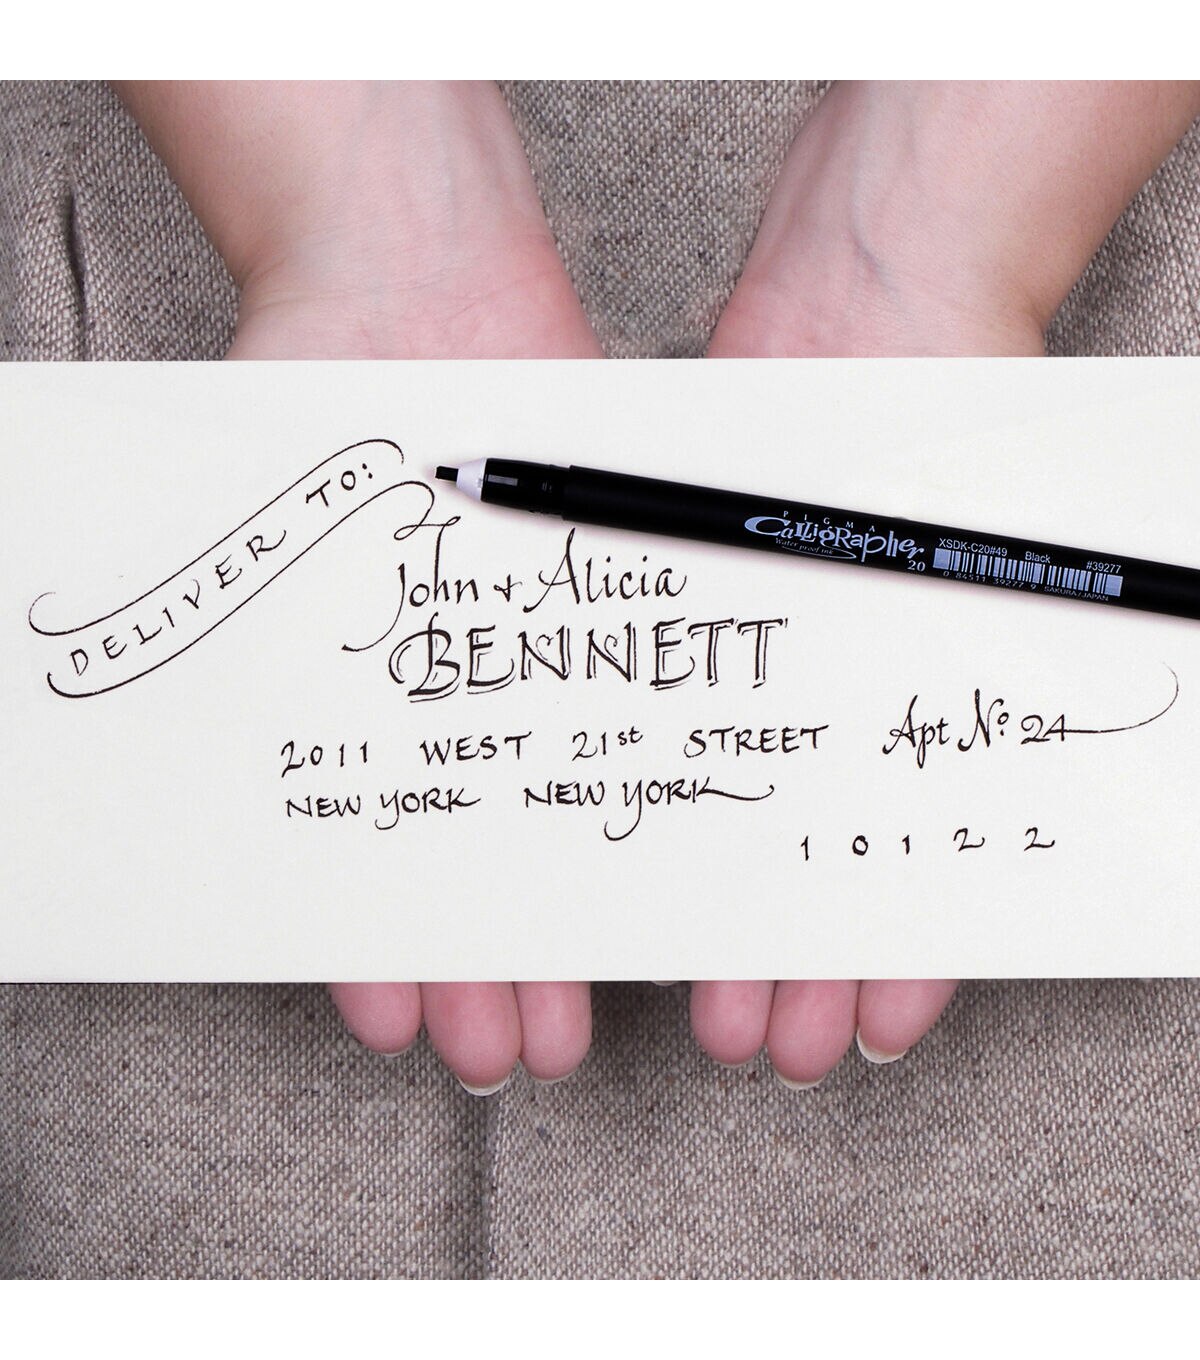 DELIVER TO:
John + Alicia
BENNETT
2011 WEST 21st STREET Apt Nº 24
NEW YORK NEW YORK
10122
PIGMA
CalligRapher
Water proof ink
20
XSDK-C20#49 Black #39277
0 84511 39277 9 SAKURA/JAPAN